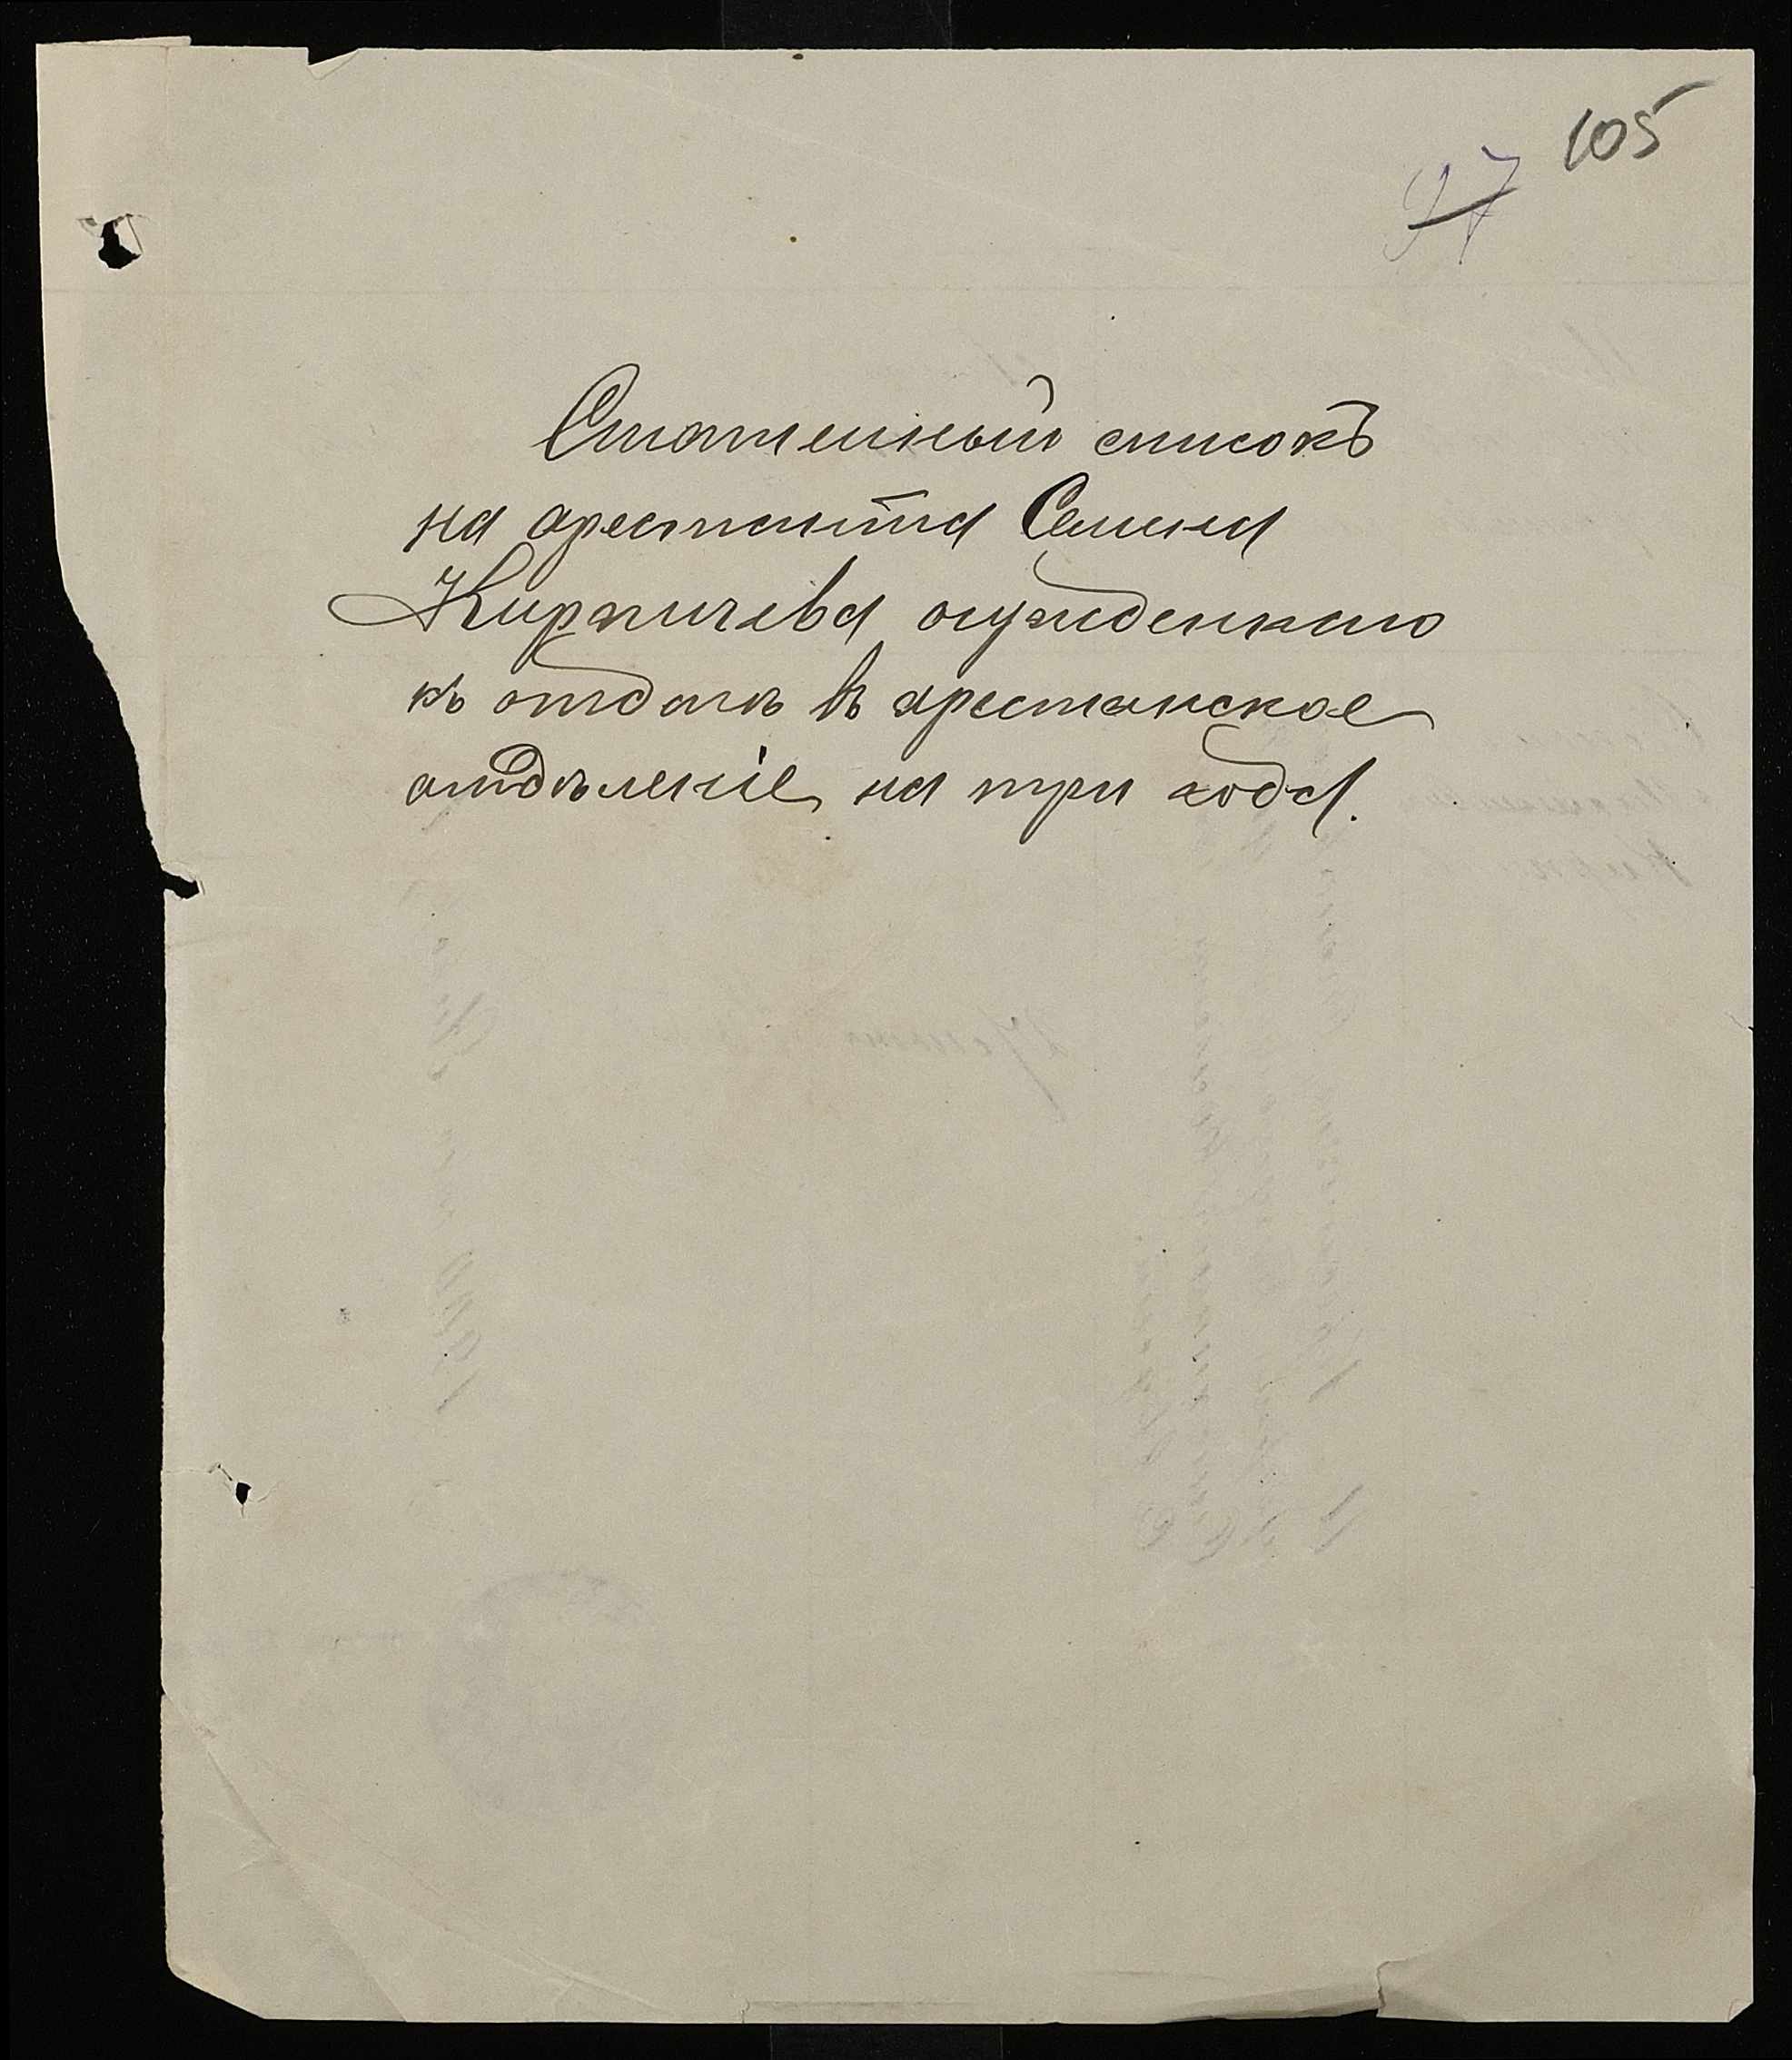 105
97
Статейный списокъ
на арестанта Семена
Кирпичева осужденнаго
къ отдачѣ въ арестанское
отдѣленіе на три года.